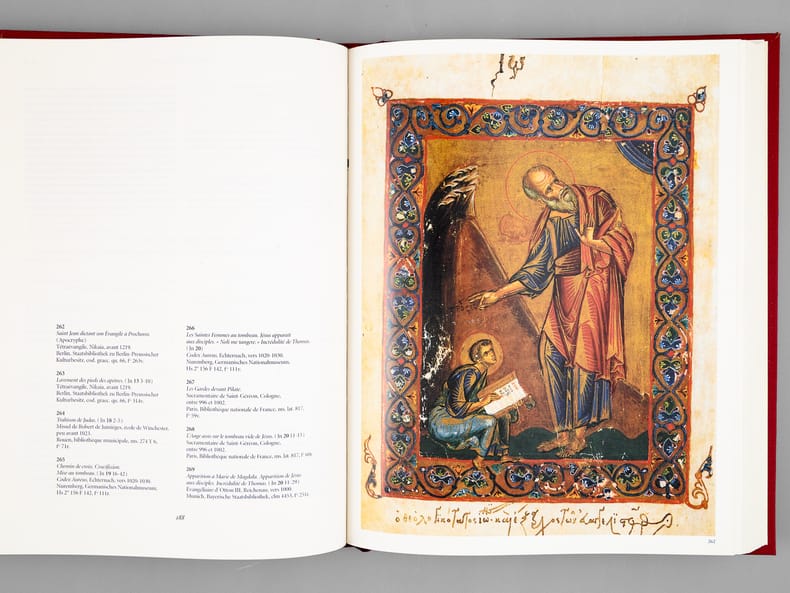 262
Saint Jean dictant son Évangile à Prochoros.
(Apocryphe)
Tétraévangile, Nikaia, avant 1219.
Berlin, Staatsbibliothek zu Berlin-Preussischer
Kulturbesitz, cod. graec. qu. 66, fº 263v.
263
Lavement des pieds des apôtres. (Jn 13 3-10)
Tétraévangile, Nikaia, avant 1219.
Berlin, Staatsbibliothek zu Berlin-Preussischer
Kulturbesitz, cod. graec. qu. 66, fº 314v.
264
Trahison de Judas. (Jn 18 2-3)
Missel de Robert de Jumièges, école de Winchester,
peu avant 1023.
Rouen, bibliothèque municipale, ms. 274 Y 6,
fº 71r.
265
Chemin de croix. Crucifixion.
Mise au tombeau. (Jn 19 16-42)
Codex Aureus, Echternach, vers 1020-1030.
Nuremberg, Germanisches Nationalmuseum,
Hs 2º 156 F 142, fº 111r.
266
Les Saintes Femmes au tombeau. Jésus apparaît
aux disciples. « Noli me tangere. » Incrédulité de Thomas.
(Jn 20)
Codex Aureus, Echternach, vers 1020-1030.
Nuremberg, Germanisches Nationalmuseum,
Hs 2º 156 F 142, fº 111r.
267
Les Gardes devant Pilate.
Sacramentaire de Saint-Géréon, Cologne,
entre 996 et 1002.
Paris, Bibliothèque nationale de France, ms. lat. 817,
fº 59r.
268
L'Ange assis sur le tombeau vide de Jésus. (Jn 20 11-13)
Sacramentaire de Saint-Géréon, Cologne,
entre 996 et 1002.
Paris, Bibliothèque nationale de France, ms. lat. 817, fº 60r.
269
Apparition à Marie de Magdala. Apparition de Jésus
aux disciples. Incrédulité de Thomas. (Jn 20 11-29)
Évangéliaire d'Otton III, Reichenau, vers 1000.
Munich, Bayerische Staatsbibliothek, clm 4453, fº 251r.
188
262